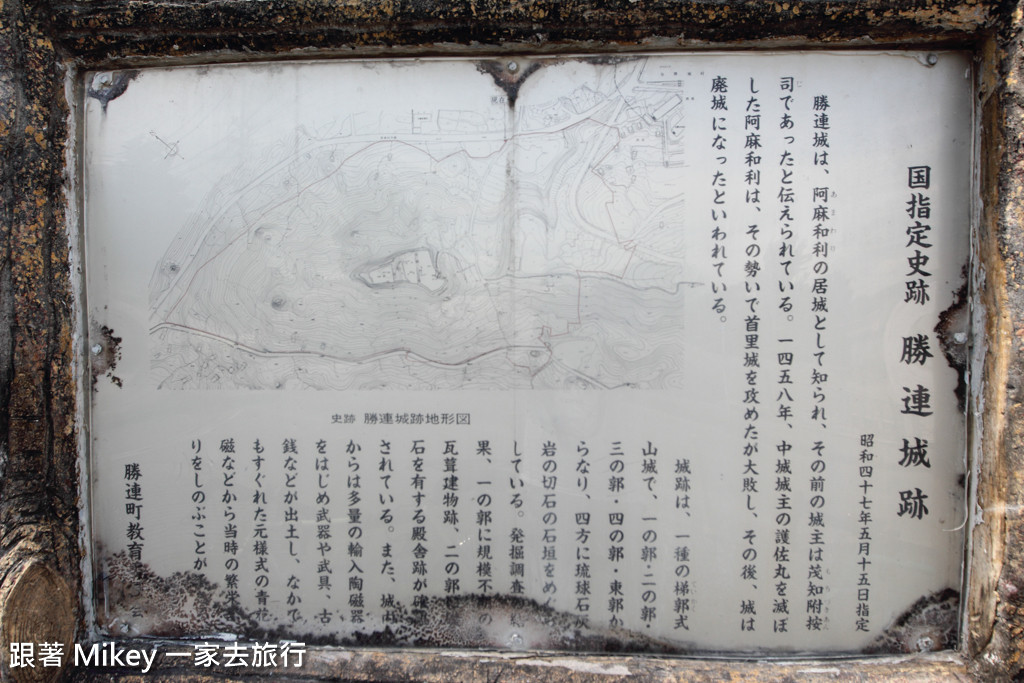 国指定史跡 勝連城跡
昭和四十七年五月十五日指定
勝連城は、阿麻和利の居城として知られ、その前の城主は茂知附按
司であったと伝えられている。一四五八年、中城城主の護佐丸を滅ぼ
した阿麻和利は、その勢いで首里城を攻めたが大敗し、その後、城は
廃城になったといわれている。
城跡は、一種の梯郭式
山城で、一の郭・二の郭
三の郭・四の郭・東郭か
らなり、四方に琉球石灰
岩の切石の石垣をめ
している。発掘調査
果、一の郭に規模不 の
瓦葺建物跡、二の郭
石を有する殿舎跡が確
されている。また、城内
からは多量の輸入陶磁器
をはじめ武器や武具、古
銭などが出土し、なかで
もすぐれた元様式の青花
磁などから当時の繁栄
りをしのぶことが
勝連町教育
史跡 勝連城跡地形図
跟著 Mikey 一家去旅行